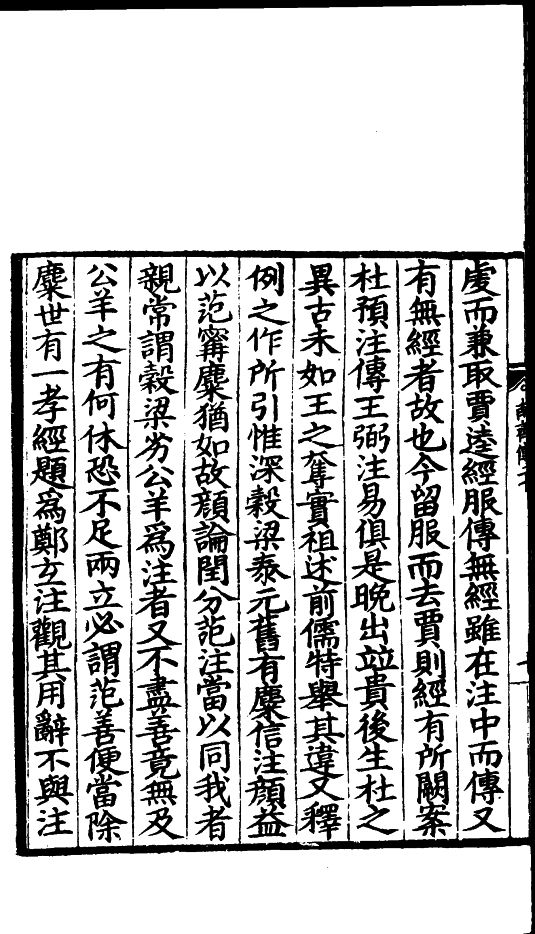 虔而兼取賈逵經服傳無經雖在注中而傳又
有無經者故也今留服而去賈則經有所闕案
杜預注傳王弼注易俱是晚出竝貴後生杜之
異古未如王之奪實祖述前儒特舉其違又釋
例之作所引惟深穀梁泰元舊有麋信注顏益
以范甯麋猶如故顏論閏分范注當以同我者
親常謂穀梁劣公羊為注者又不盡善竟無及
公羊之有何休恐不足兩立必謂范善便當除
麋世有一孝經題為鄭玄注觀其用辭不與注